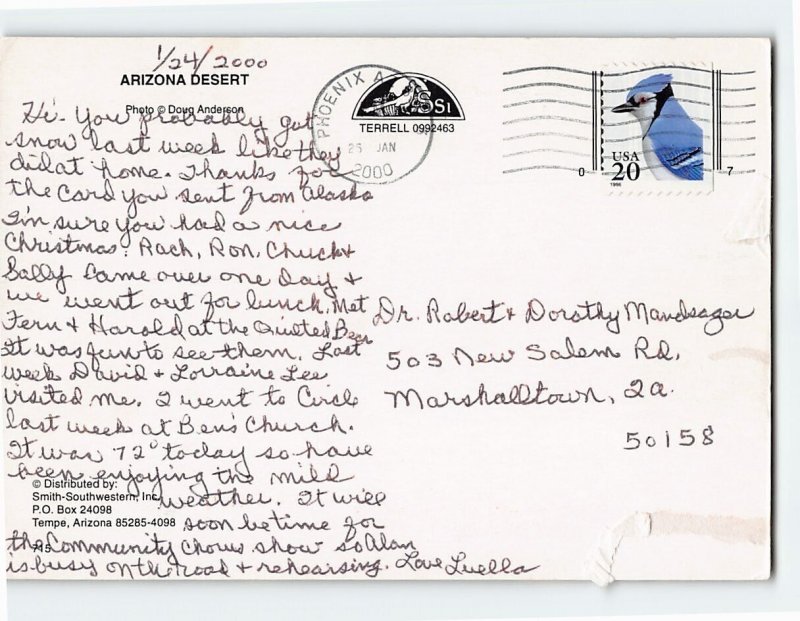 1/24/2000
ARIZONA DESERT
Photo © Doug Anderson
Hi - You probably got
snow last week like they
did at home. Thanks for
the card you sent from Alaska
I'm sure you had a nice
Christmas. Rach, Ron, Chuck +
Sally came over one day +
we went out for lunch. Met
Fern + Harold at the Quilted Bear
It was fun to see them. Last
week David + Lorraine Lee
visited me. I went to Circle
last week at Ben's Church.
It was 72° today so have
been enjoying the mild
weather. It will
soon be time for
the Community Chorus show so Alan
is busy on the road + rehearsing. Love Luella
© Distributed by:
Smith-Southwestern, Inc.
P.O. Box 24098
Tempe, Arizona 85285-4098
PHOENIX A
25 JAN
2000
SSI
TERRELL 0992463
USA
20
1996
0 7
Dr. Robert + Dorothy Mandsager
503 New Salem Rd.
Marshalltown, Ia.
50158